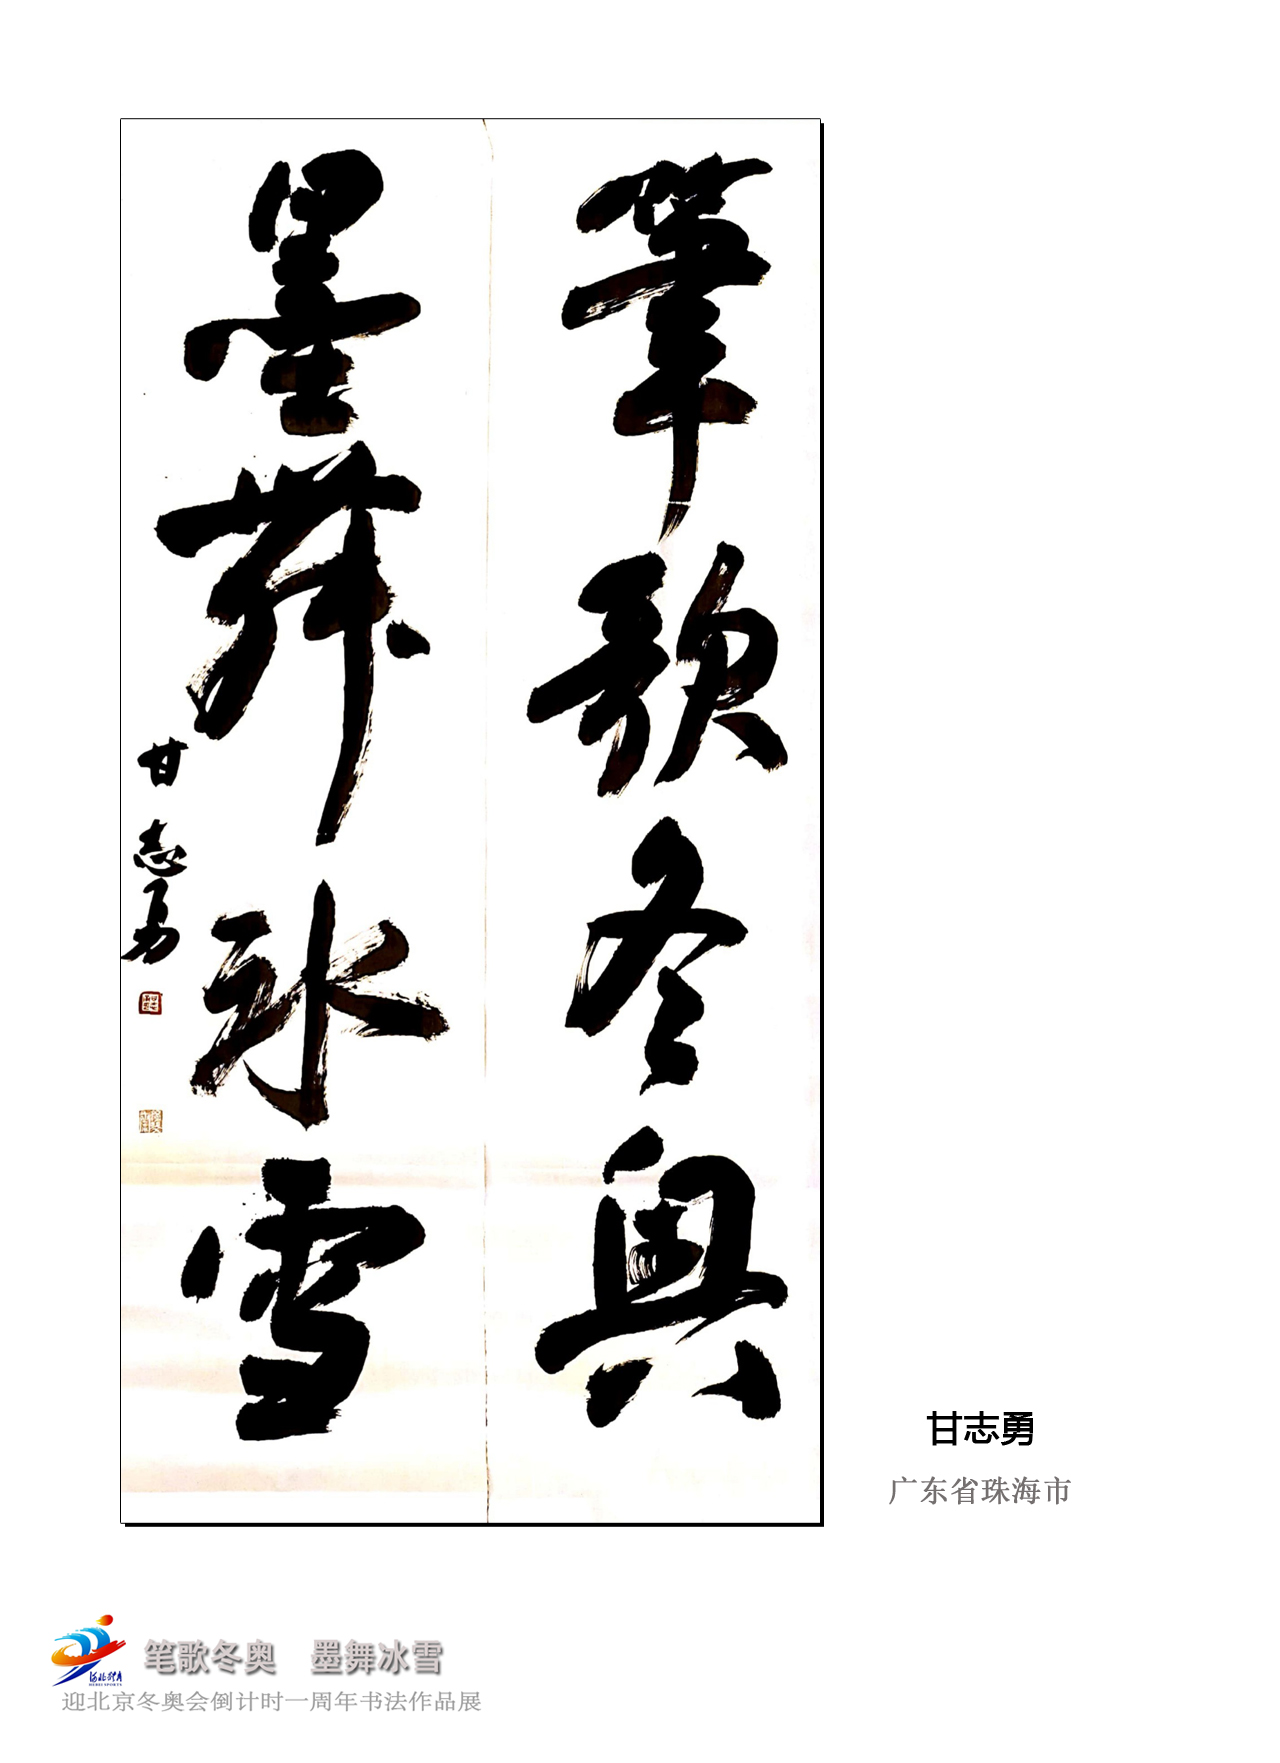 筆歌冬奥
墨舞冰雪
甘志勇
甘志勇
广东省珠海市
笔歌冬奥 墨舞冰雪
迎北京冬奥会倒计时一周年书法作品展
河北体育
HEBEI SPORTS